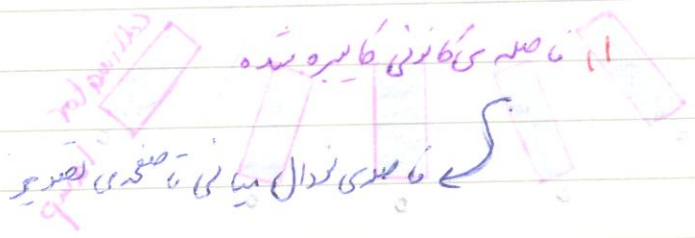 ۱۱ فاصله ی کانونی کالیبره شده
فاصله ی نودال میانی تا صفحه ی تصویر